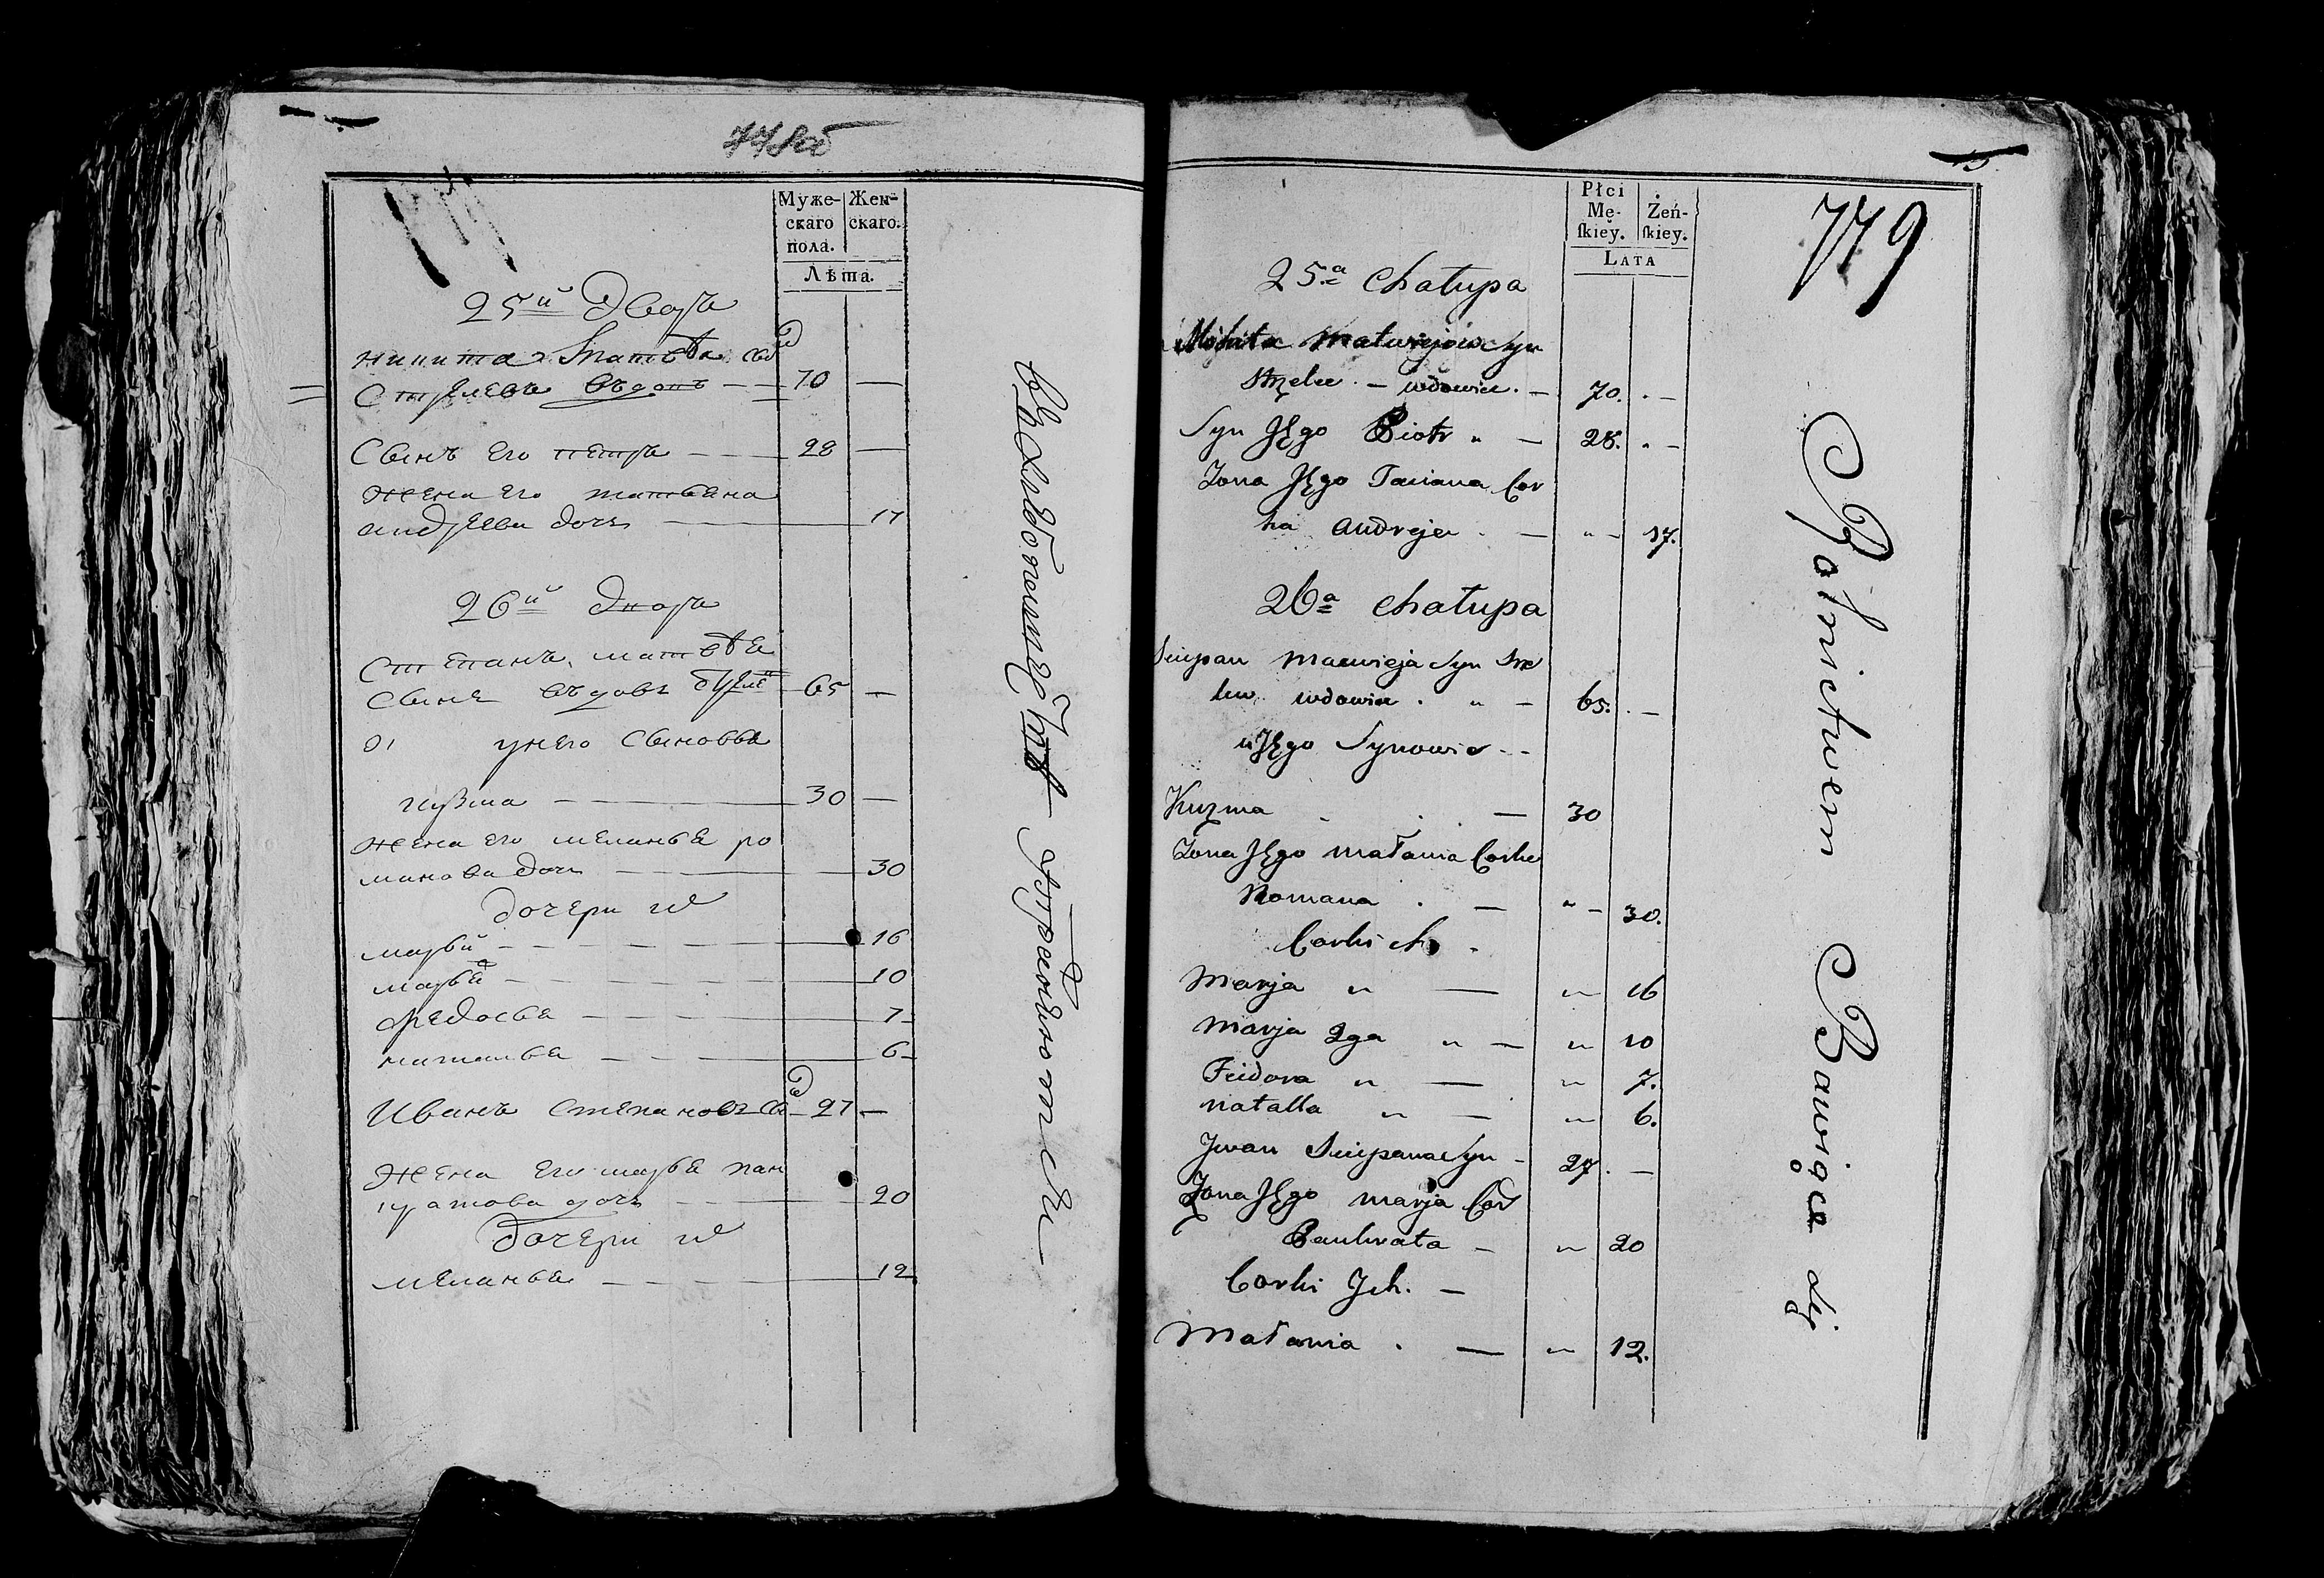 778об
Муже-
скаго
пола.
Жен-
скаго.
Лѣта.
25й Дворъ
никита Матвѣя сы
Стрелевъ вдовъ 70 —
Сынъ его петръ 28 —
жена его татьяна
андреева дочь 17
26й двор
Степанъ матвѣя
сынъ вдовъ 65 —
у него сыновья
кузма 30 —
жена его меланья ро
манова дочь 30
дочери их
марья 16
марья 10
федосья 7
наталья 6
Иванъ степановъ сы 27 —
жена его марья пан
кратова дочь 20
дочери их
меланья 12
779
Płci
Mę-
skiey.
Żeń-
skiey.
LATA
25.a Chałupa
Mikita Matwiejów Syn
Strzelew. — wdowiec. — 70. . —
Syn Jego Piotr „ — 28. „ —
Żona Jego Taciana Cor
ka Andreja . — „ — 17.
26a Chałupa
Sciepan Macwieja Syn Strze
lew wdowiec . „ — 65. . —
u Jego Synowie - -
Kuzma . . — 30
Żona Jego Małania Corka
Romana . — „ — 30.
Corki ich .
Marja „ — „ 16
Marja 2ga „ — „ 10
Feidora „ — „ 7.
Natalla „ — „ 6.
Jwan Sciepana Syn — 27. —
Żona Jego Marja Cor
Pankrata — „ 20
Corki Jch. —
Małania . — „ 12.
Rolnictwem Bawiące się